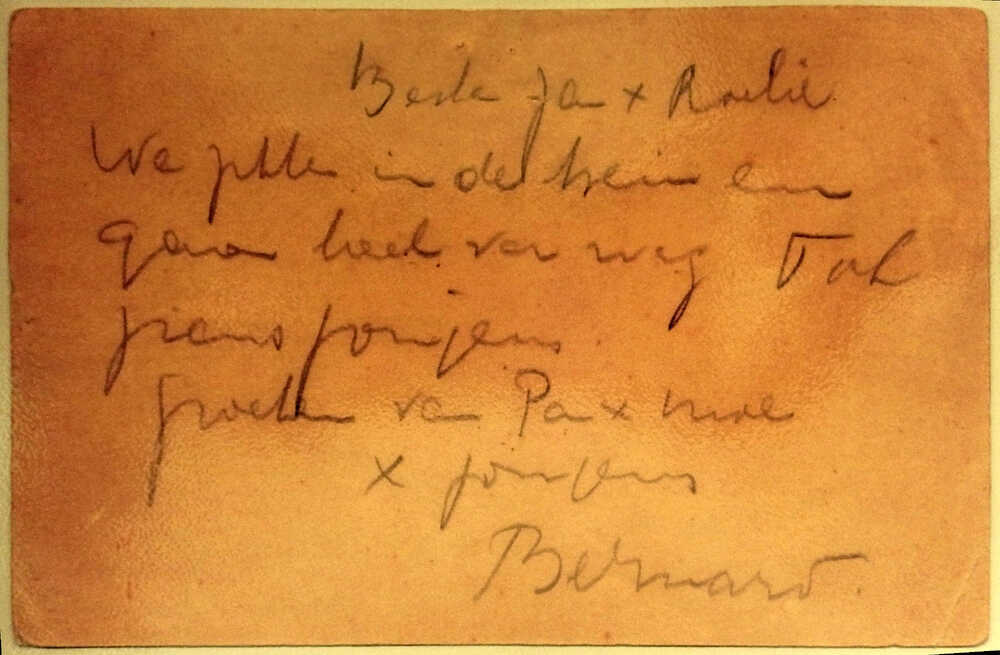 Beste Ja x Roelie
We zitten in de trein en
gaan heel ver weg
jongens
groeten van Pa x moe
x jongens
Bernard.